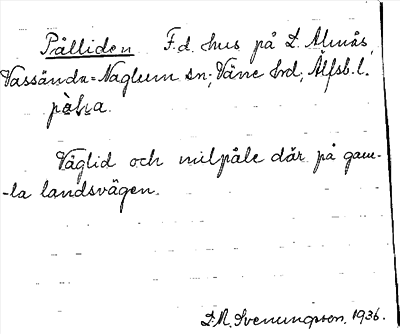 Pålliden F.d. hus på L. Almås,
Vassända-Naglum sn; Väne hrd; Älfsb. l.
Väglid och milpåle där på gam-
-la landsvägen.
1936.